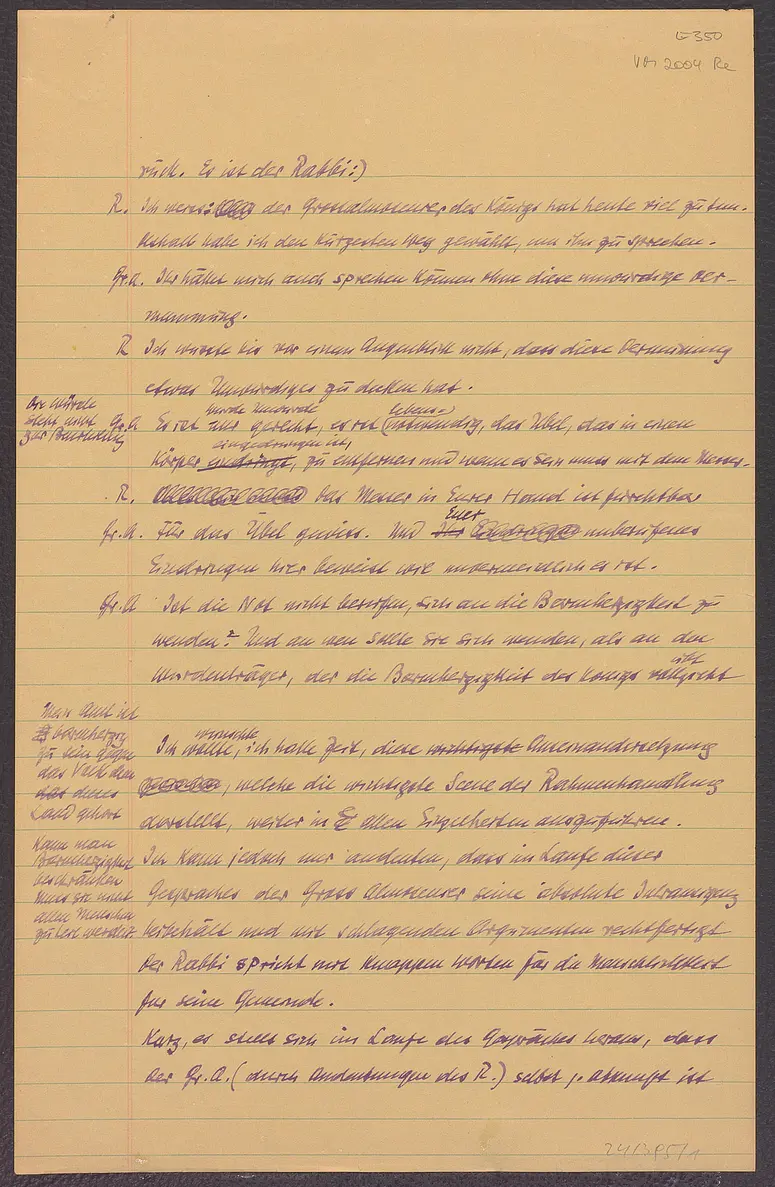 E350
VM 2004 Re
rück. Es ist der Rabbi:)
R. Ich weiss: der Grossalmosenier des Königs hat heute viel zu tun.
Deshalb habe ich den kürzesten Weg gewählt, um ihn zu sprechen.
Gr.A. Ihr hättet mich auch sprechen können ohne diese unwürdige Ver-
mummung.
R Ich wusste bis vor einem Augenblick nicht, dass diese Vermummung
etwas Unwürdiges zu decken hat.
Die Würde
steht nicht
zur Beurteilung
Gr.A Es ist nur gerecht, es ist (lebens-)notwendig, das Übel, das in einen
Körper eingedrungen ist, zu entfernen und wenn es sein muss mit dem Messer.
R. Das Messer in Eurer Hand ist furchtbar
Gr.A. Für das Übel gewiss. Und Euer unberufenes
Eindringen hier beweist wie unvermeidlich es ist.
Gr.A Ist die Not nicht berufen, sich an die Barmherzigkeit zu
wenden? Und an wen sollte sie sich wenden, als an den
Würdenträger, der die Barmherzigkeit des Königs übt
Mein Amt ist
barmherzig
zu sein gegen
das Volk dem
dieses
Land gehört
Kann man
Barmherzigkeit
beschränken
muss sie nicht
allen Menschen
zu teil werden.
Ich wünschte, ich hätte Zeit, diese Auseinandersetzung
, welche die wichtigste Scene der Rahmenhandlung
darstellt, weiter in allen Einzelheiten auszuführen.
Ich kann jedoch nur andeuten, dass im Laufe dieser
Gespräches der Gross Almosenier seine absolute Intransigenz
beibehält und mit schlagenden Argumenten rechtfertigt
Der Rabbi spricht mit knappen Worten für die Menschlichkeit
für seine Gemeinde.
Kurz, es stellt sich im Laufe des Gespräches heraus, dass
der Gr.A. (durch Andeutungen des R.) selbst j. Abkunft ist
24/395/1